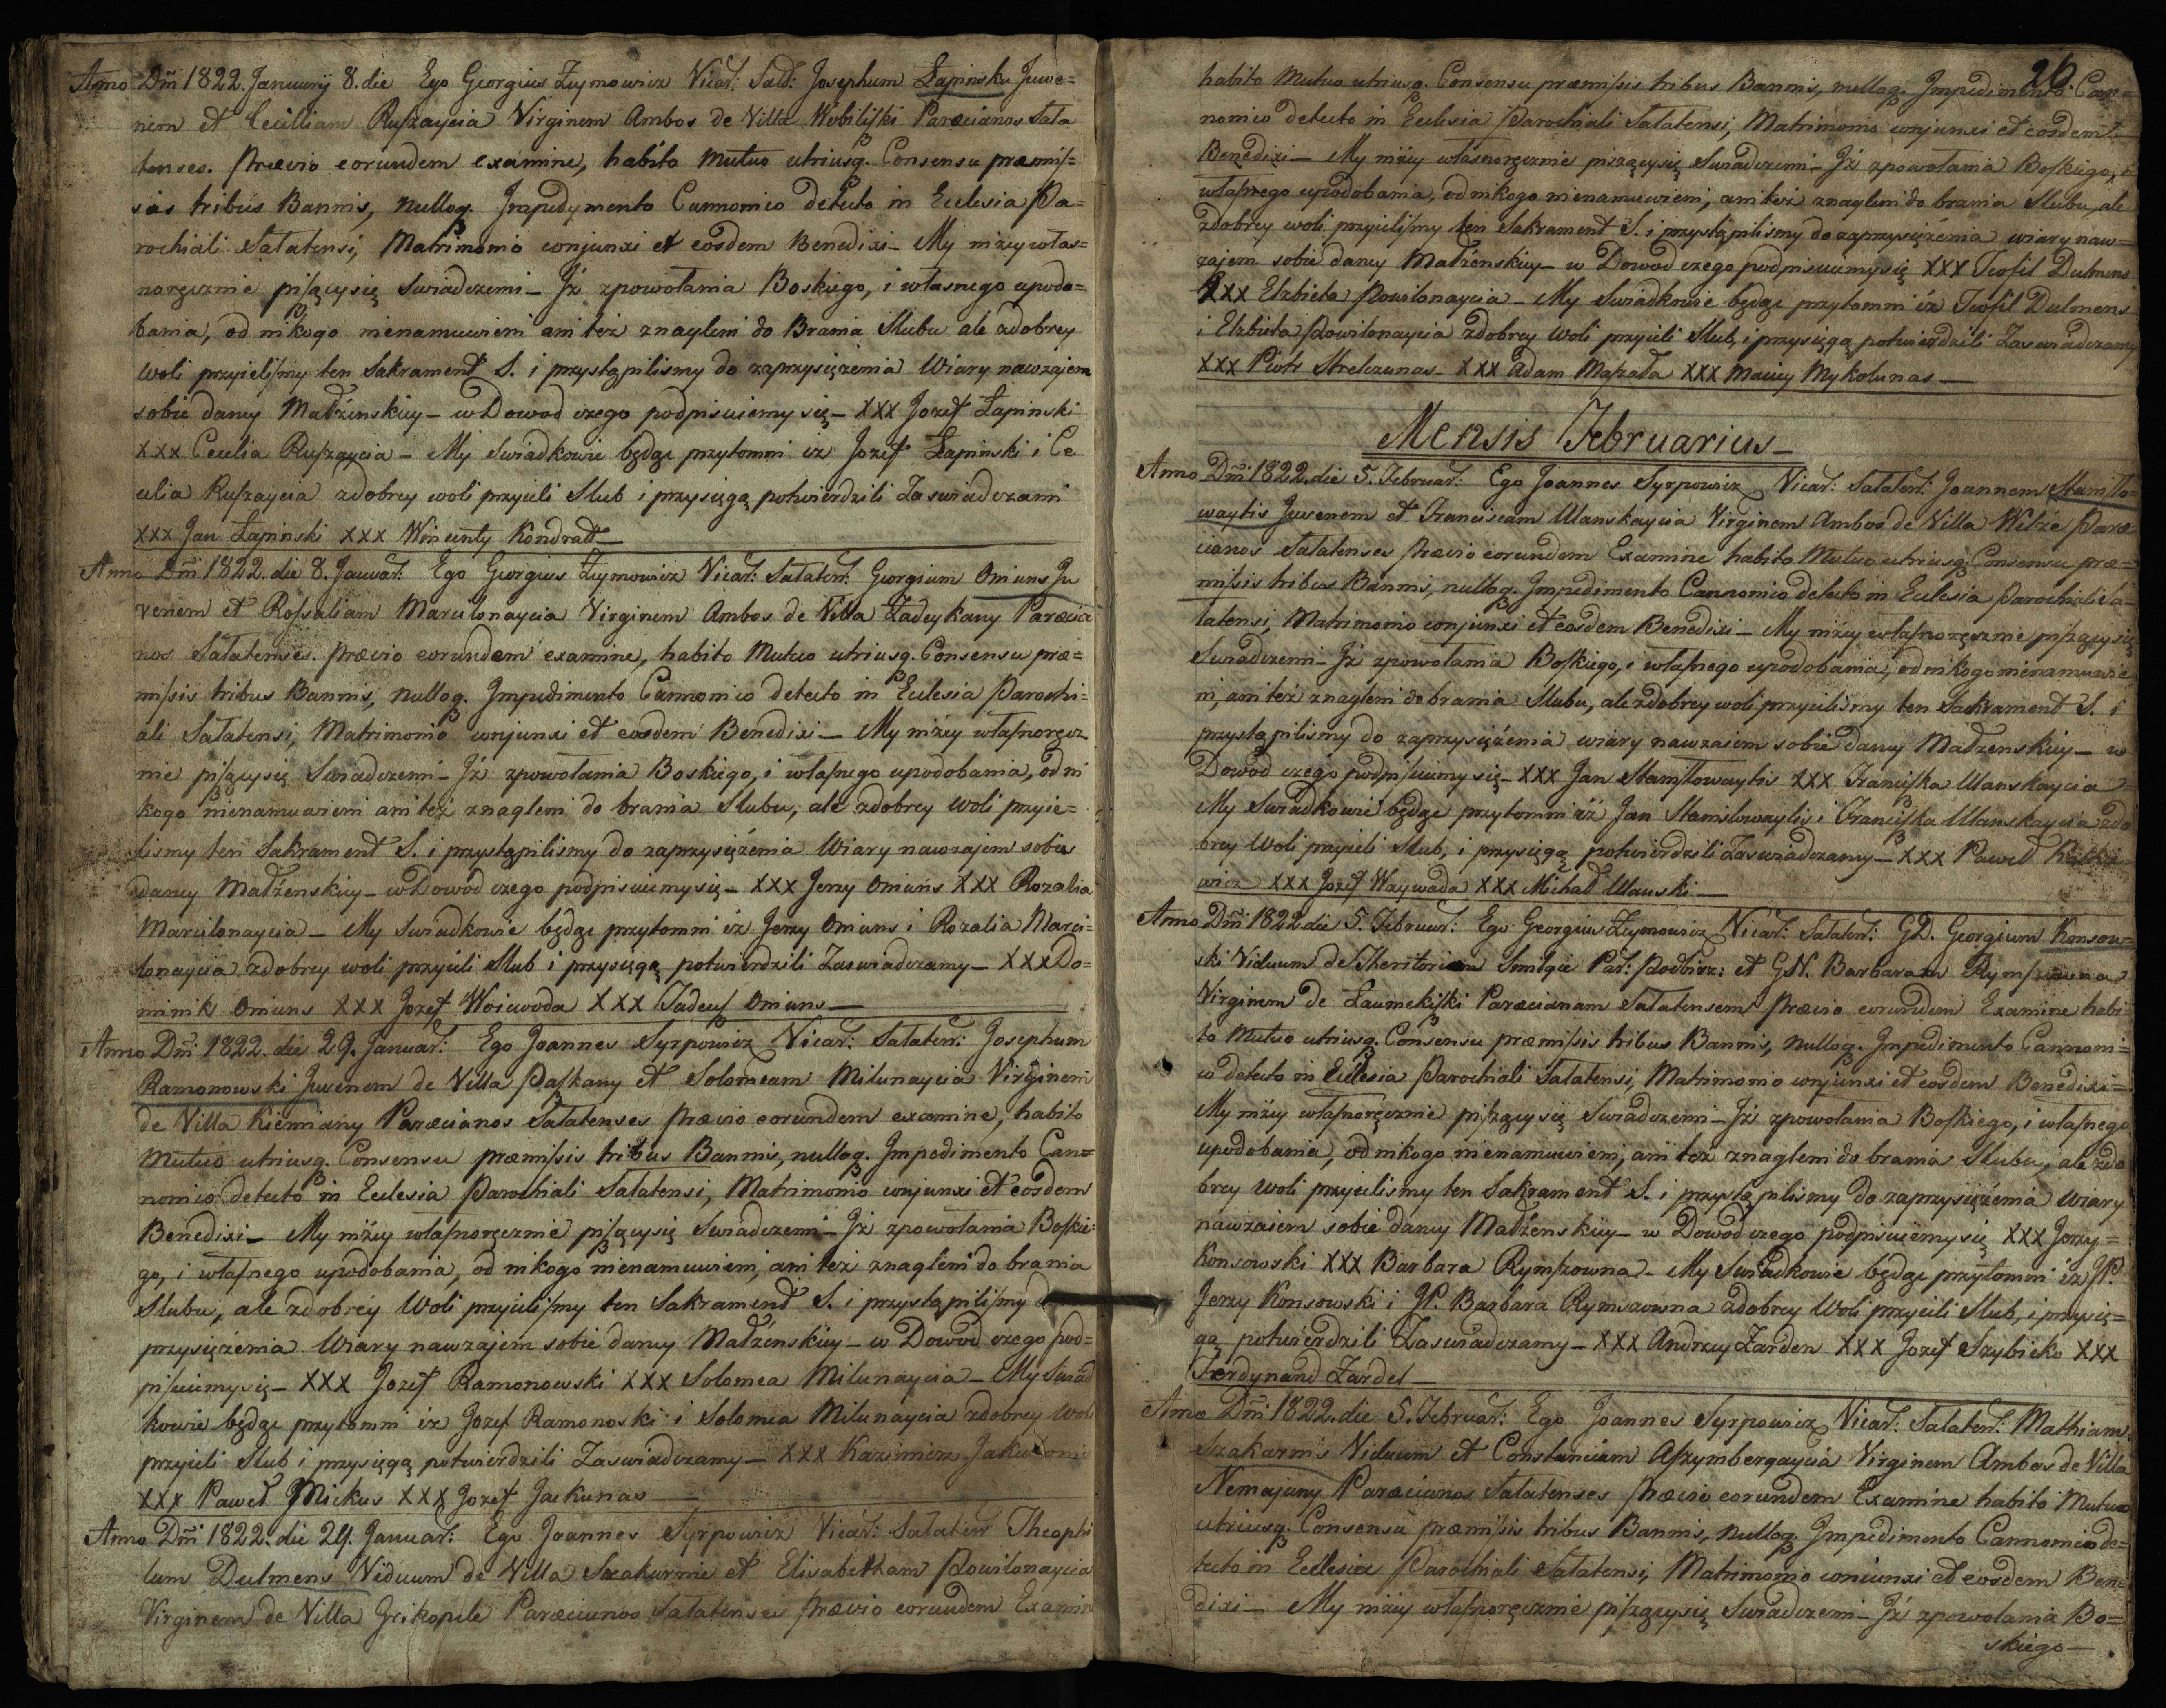 Anno Dñi 1822. Januarij 8. die Ego Georgius Zymowicz Vicar: Sałat: Josephum Łapinsku Juve=
nem et Ceciliam Ruszaycia Virginem Ambos de Villa Wobiliszki Paræcianos Sała
tenses. Prævio eorundem examine, habito mutuo utriusq. Consensu præmis=
sis tribus Bannis, nulloq. Impedymento Cannonico detecto in Eclesia Pa=
rochiali Sałatensi, Matrimonio conjunxi et eosdem Benedixi_ My niżey własz=
noręcznie piszący się Swiadczemi_ Jż zpowołania Boskiego, i własnego upodo=
bania, od nikogo nienamuwieni ani też znagleni do Brania Slubu ale zdobrey
woli przyielismy ten Sakrament S. i przystąpilismy do zaprzysiężenia Wiary nawzajem
sobie daney Małżenskiey_ wDowod czego podpisuiemy się_ XXX Jozef Łapinski
XXX Cecelia Ruszaycia_ My Swiadkowie będąc przytomni iż Jozef Łapinski i Ce
celia Ruszaycia zdobrey woli przyieli Slub i przysięgą potwierdzili Zaswiadczami
XXX Jan Łapinski XXX Wincenty Kondratt_
Anno Dñi 1822. die 8. Januar: Ego Georgius Zymowicz Vicar: Sałaten: Georgium Omiuns Ju
venem et Rossaliam Marcilonaycia Virginem Ambos de Villa Ładeykany Paræcia
nos Sałatenses. prævio eorundem examine, habito Mutuo utriusq. Consensu præ=
missis tribus Bannis, nulloq. Impedimento Cannonico detecto in Eclesia Parochi=
ali Sałatensi, Matrimonio conjunxi et eosdem Benedixi_ My niżey własnoręcz
nie piszący się Swiadczemi_ Jż zpowołania Boskiego, i własnego upodobania, od ni
kogo nienamuwieni ani też znagleni do brania Slubu, ale zdobrey woli przyie=
lismy ten Sakrament S. i przystąpilismy do zaprzysiężenia Wiary nawzajem sobie
daney Małżenskiey_ wDowod czego podpisuiemy się_ XXX Jerzy Omiuns XXX Rozalia
Marcilonaycia_ My Swiadkowie będąc przytomni iż Jerzy Omiuns i Rozalia Marci=
lonaycia zdobrey woli przyieli Slub i przysięgą potwierdzili Zaswiadczamy_ XXX Do=
minik Omiuns XXX Jozef Woiewoda XXX Tadeusz Omiuns_
Anno Dñi 1822. die 29. Januar: Ego Joannes Syrpowicz Vicar: Sałaten: Josephum
Ramonowski Juvenem de Villa Paszkany et Solomeam Milunaycia Virginem
de Villa Kiemiany Paræcianos Sałatenses Prævio eorundem examine, habito
Mutuo utriusq. Consensu præmissis tribus Bannis, nulloq. Impedimento Can=
nonico detecto in Eclesia Parochiali Sałatensi, Matrimonio conjunxi et eosdem
Benedixi_ My niżey własnoręcznie piszący się Swiadczemi_ Jż zpowołania Boskie=
go, i własnego upodobania, od nikogo nienamuwieni, ani też znagleni do brania
Slubu, ale zdobrey Woli przyielismy ten Sakrament S. i przystąpilismy
przysiężenia Wiary nawzajem sobie daney Małżenskiey_ w Dowod czego pod=
pisuiemy się_ XXX Jozef Ramonowski XXX Solomea Milunaycia_ My Swiad
kowie będąc przytomni iż Jozef Ramonoski i Solomea Milunaycia zdobrey Woli
przyieli Slub i przysięgą potwierdzili Zaswiadczamy_ XXX Kazimierz
XXX Paweł Mickus XXX Jozef Jackunas_
Anno Dñi 1822. die 29. Januar: Ego Joannes Syrpowicz Vicar: Sałaten Theophi
lum Dulmens Viduum de Villa Szakurnie et Elisabetham Powilonaycia
Virginem de Villa Grikopele Paræcianos Sałatenses Prævio eorundem Examin
26
habito Mutuo utriusq. Consensu præmissis tribus Bannis, nulloq. Impedimento Can
nonico detecto in Eclesia Parochiali Sałatensi, Matrimonio conjunxi et eosdem
Benedixi_ My niżey własnoręcznie piszący się Swiadczemi_ Jż zpowołania Boskiego, i
własnego upodobania, od nikogo nienamuwieni, ani też znagleni do brania Slubu, ale
zdobrey woli przyielismy ten Sakrament S. i przystąpilismy do zaprzysiężenia wiary naw=
zajem sobie daney Małżenskiey_ w Dowod czego podpisuiemy się XXX Teofil Dulmens
XXX Elzbieta Powilonaycia_ My Swiadkowie będąc przytomni iż Teofil Dulmens
i Elzbieta Powilonaycia zdobrey Woli przyieli Slub, i przysięgą potwierdzili Zaswiadczamy
XXX Piotr Strelczunas_ XXX Adam Maszała XXX Maciey Mykolunas_
Mensis Februarius_
Anno Dñi 1822. die 5. Februar: Ego Joannes Syrpowicz Vicar: Sałaten: Joannem Stanisło=
waytis Juvenem et Franciscam Ulanskaycia Virginem Ambos de Villa Wilże Paræ
cianos Sałatenses Prævio eorundem Examine habito Mutuo utriusq. Consensu præ=
missis tribus Bannis, nulloq. Impedimento Cannonico detecto in Eclesia Parochiali Sa=
łatensi, Matrimonio conjunxi et eosdem Benedixi_ My niżey własnoręcznie piszący się
Swiadczemi_ Jż zpowołania Boskiego, i własnego upodobania, od nikogo nienamuwie
ni, ani też znagleni do brania Slubu, ale zdobrey woli przyielismy ten Sackrament S. i
przystąpilismy do zaprzysiężenia wiary nawzaiem sobie daney Małżenskiey_ w
Dowod czego podpisuiemy się_ XXX Jan Stanisłowaytis XXX Franciszka Ulanskaycia=
My Swiadkowie będąc przytomni iż Jan Stanislowaytis i Franciszka Ulanskaycia zdo
brey Woli przyieli Slub, i przysięgą potwierdzili Zaswiadczamy_ XXX Paweł
wicz XXX Jozef Waywada XXX Michał Ulanski_
Anno Dñi 1822 die 5. Februar: Ego Georgius Zymowicz Vicar: Sałaten: GD. Georgium Konsow=
ski Viduum de Theritorium Smilgie Par: Podbirz: et GN. Barbaram Rymszowna
Virginem de Łaumekiszki Paræcianam Sałatensem Prævio eorundem Examine habi=
to Mutuo utriusq. Consensu præmissis tribus Bannis, nulloq. Impedimento Cannoni=
co detecto in Eclesia Parochiali Sałatensi, Matrimonio conjunxi et eosdem Benedixi=
My niżey własnoręcznie piszący się Swiadczemi_ Jż zpowołania Boskiego, i własnego
upodobania, od nikogo nienamuwieni, ani też znagleni do brania Slubu, ale zdo
brey Woli przyielismy ten Sakrament S. i przystąpilismy do zaprzysiężenia Wiary
nawzaiem sobie daney Małżenskiey_ w Dowod czego podpisuiemy się XXX Jerzy=
Konsowski XXX Barbara Rymszowna_ My Swiadkowie będąc przytomni iż JP.
Jerzy Konsowski i JP. Barbara Rymszowna zdobrey Woli przyieli Slub, i przysię=
gą potwierdzili Zaswiadczamy_ XXX Andrzey Zarden XXX Jozef Szybicko XXX
Ferdynand Zardel_
Anno Dñi 1822. die 5. Februar: Ego Joannes Syrpowicz Vicar: Sałaten: Mathiam
Szakarnis Viduum et Constanciam Aszymbergaycia Virginem Ambos de Villa
Nemajuny Paræcianos Sałatenses Prævio eorundem Examine habito Mutuo
utriusq. Consensu præmissis tribus Bannis, nulloq. Impedimento Cannonico de=
tecto in Eclesia Parochiali Sałatensi, Matrimonio coniunxi et eosdem Bene
dixi_ My niżey własnoręcznie piszący się Swiadczemi_ Jż zpowołania Bo=
skiego_